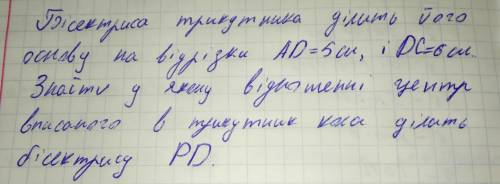 Бісектриса трикутника ділить його
основу на відрізки AD=5см, і DC=6см.
Знайти у якому відношенні центр
вписаного в трикутник кола ділить
бісектрису PD.